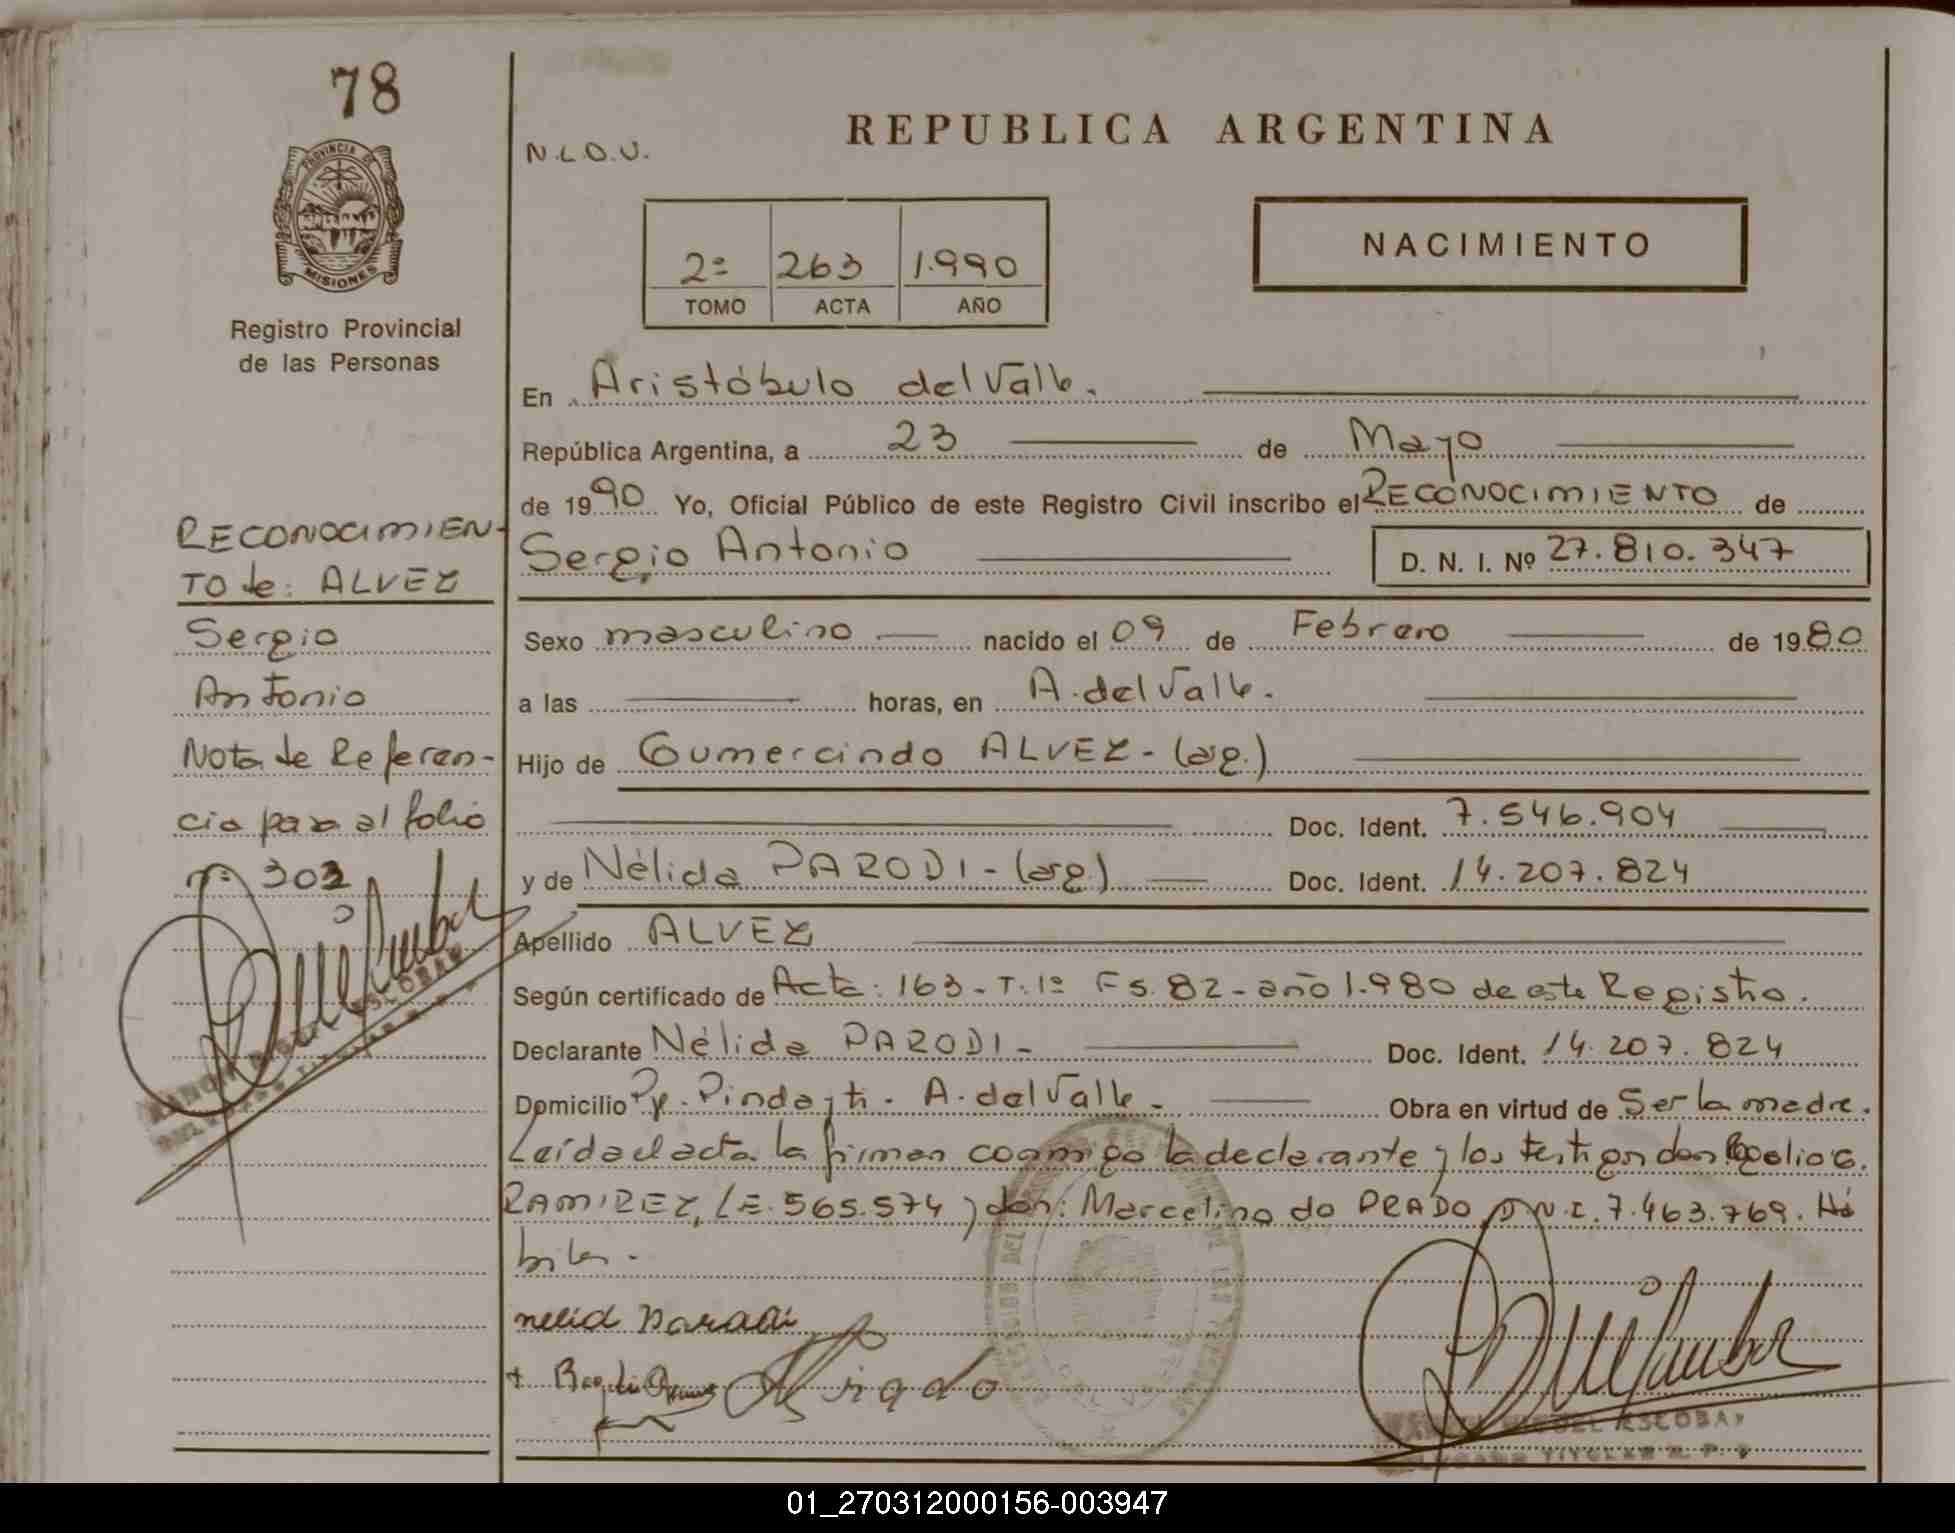 78
PROVINCIA DE
MISIONES
Registro Provincial
de las Personas
RECONOCIMIEN-
TO de: ALVEZ
Sergio
Antonio
Nota de Referen-
cia pasa al folio
nº 303
N.L.O.V.
REPUBLICA ARGENTINA
2º 263 1.990
TOMO ACTA AÑO
NACIMIENTO
En Aristóbulo del Valle.
República Argentina, a 23 de Mayo
de 1990 Yo, Oficial Público de este Registro Civil inscribo el RECONOCIMIENTO de
Sergio Antonio D. N. I. Nº 27.810.347
Sexo masculino nacido el 09 de Febrero de 1980
a las horas, en A. del Valle.
Hijo de Gumercindo ALVEZ - (arg.)
Doc. Ident. 7.546.904
y de Nélida PARODI - (arg.) Doc. Ident. 14.207.824
Apellido ALVEZ
Según certificado de Acta: 163 - T: 1º Fs. 82 - año 1.980 de este Registro.
Declarante Nélida PARODI - Doc. Ident. 14.207.824
Domicilio Pje. Pindayti - A. del Valle - Obra en virtud de Ser la madre.
Leída el acta la firman conmigo la declarante y los testigos don G.
RAMIREZ, LE. 565.574 y don: Marcelino do PRADO, D.N.I. 7.463.769. Há
biles -
nelid Parodi
Prado
MIGUEL ESCOBAR
TITULAR R. P. P
01_270312000156-003947